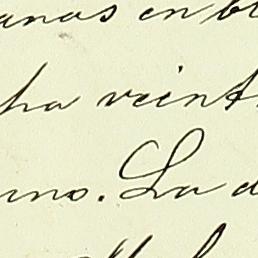 anas en bl
ha veint
uno. La d